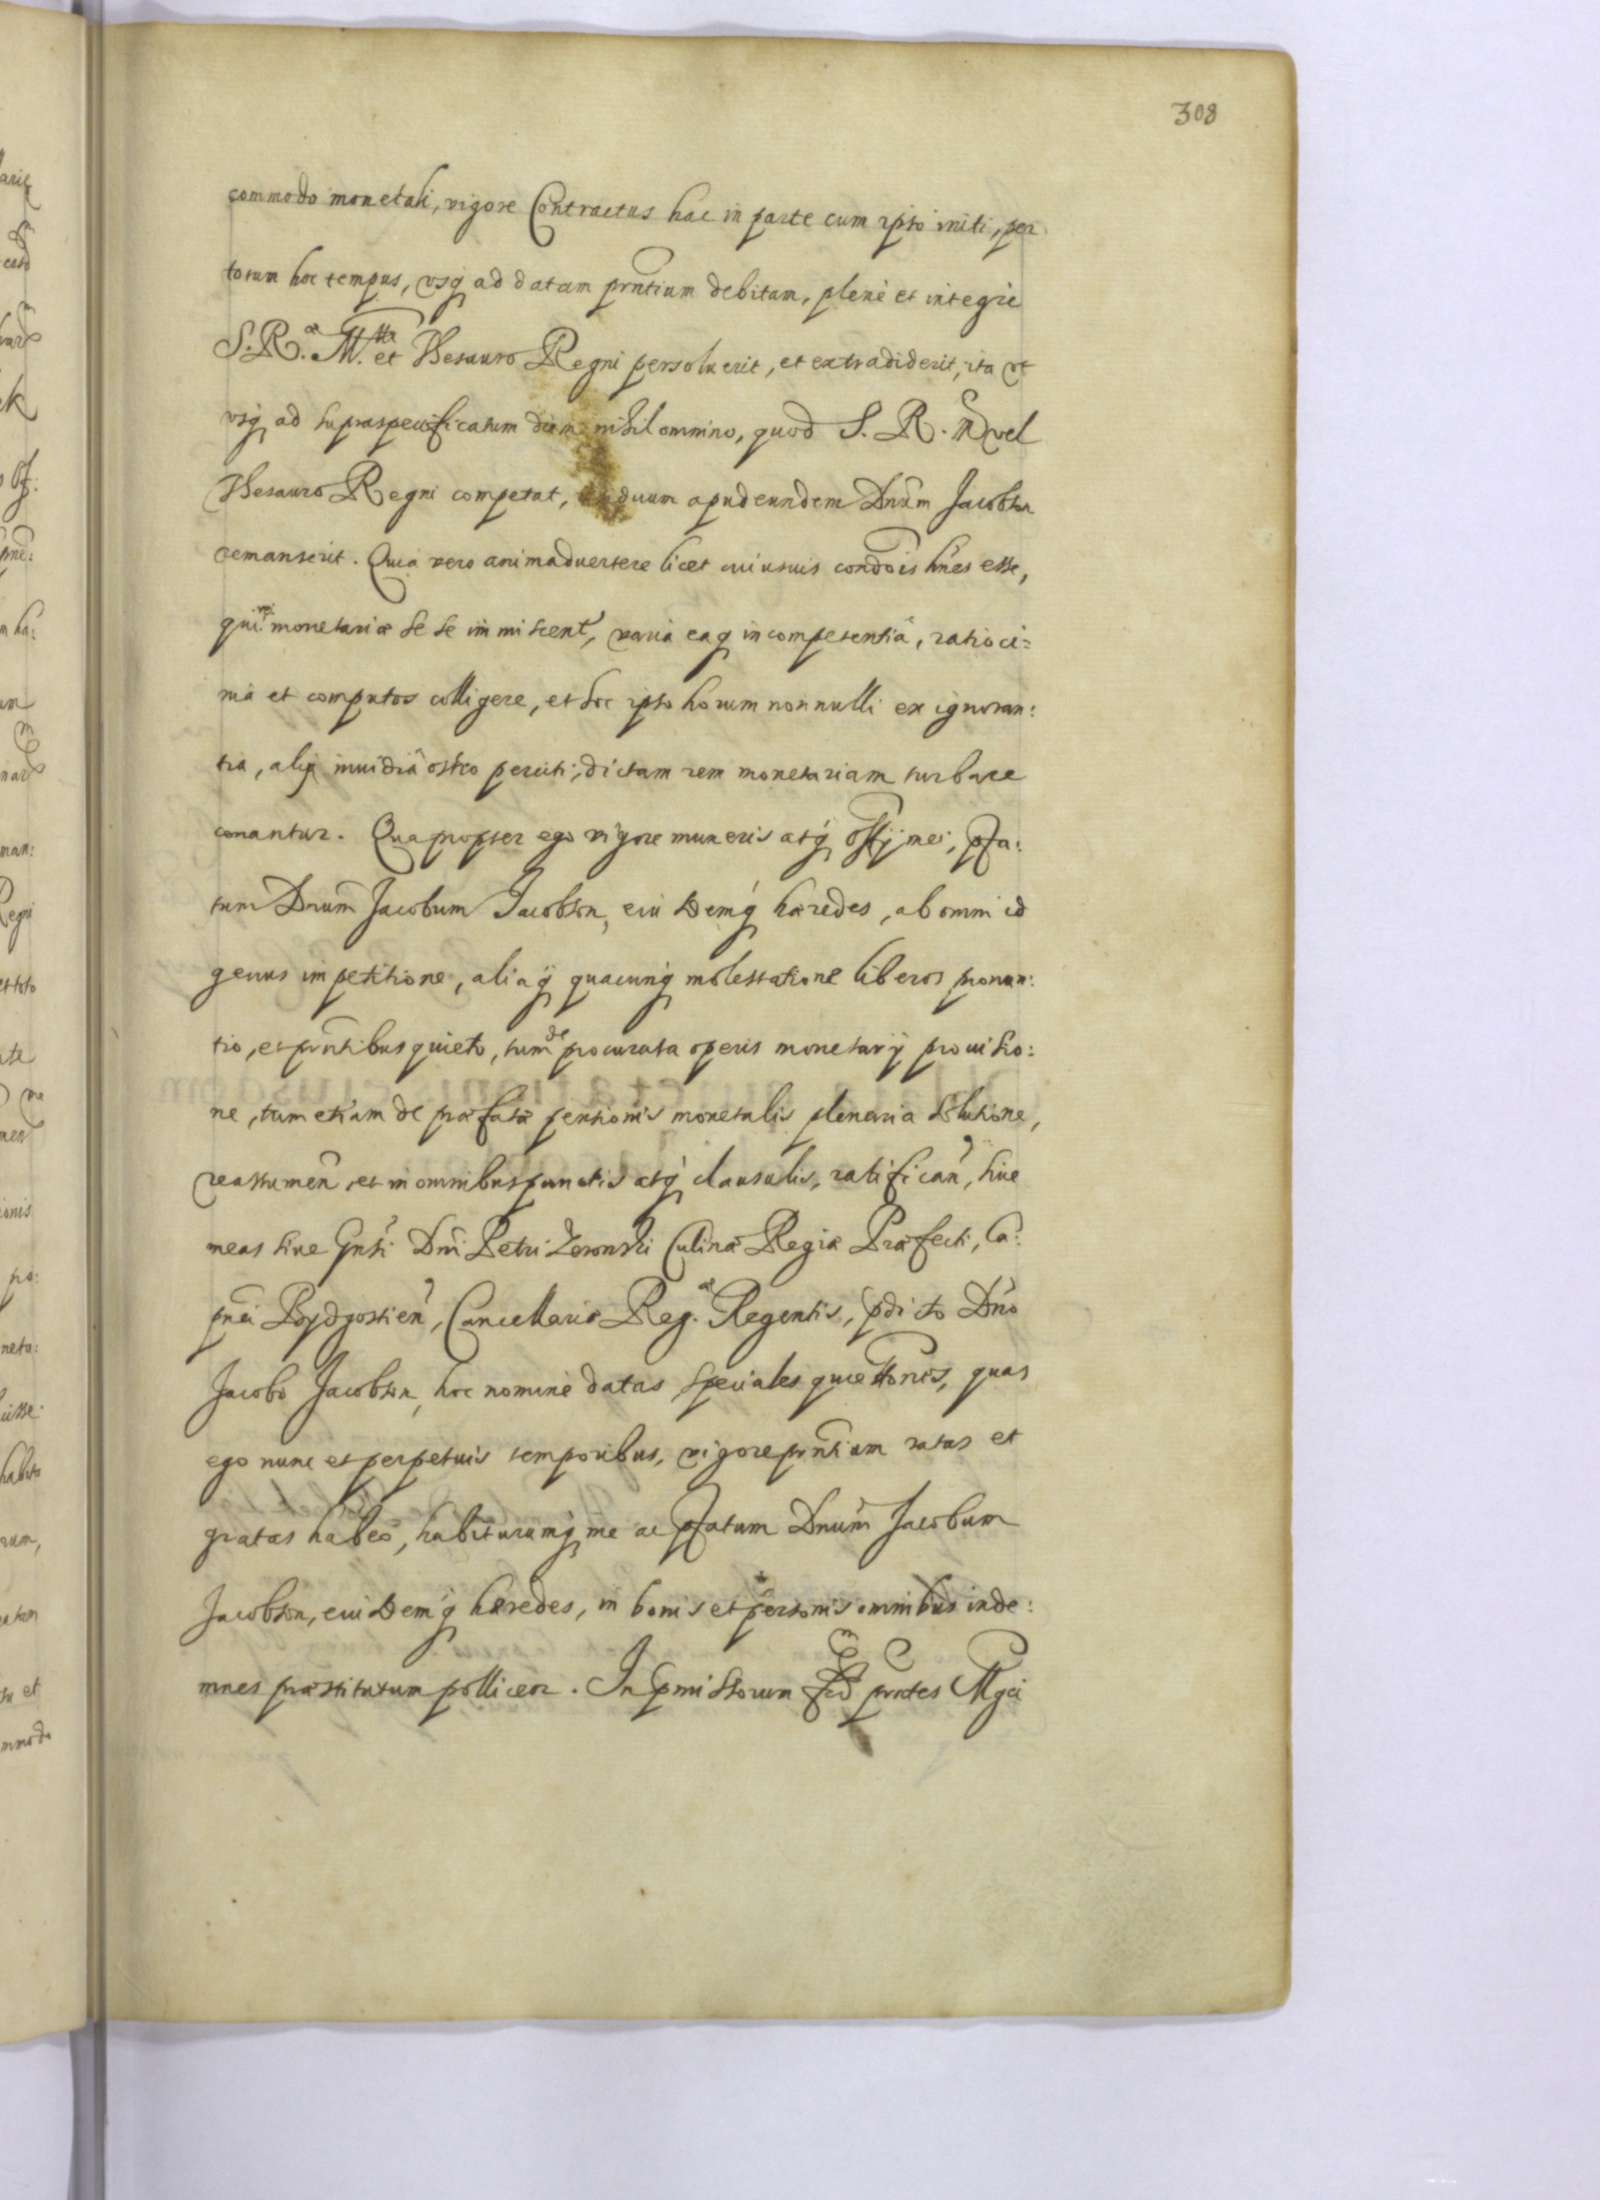 308
commodo monetali, vigore Contractus hac in parte cum ipso initi, per
totum hoc tempus, vsq ad datam prntium debitam, plenè et integrè
S. R.æ M.tti et Thesauro Regni persoluerit, et extradiderit, ita vt
vsq ad supraspecificatum diem nihil omnino, quod S. R. M vel
Thesauro Regni competat, apud eundem Dnum Jacobson
remanserit. Quia vero animaduertere licet cuiusuis condois hnes esse,
qui rei monetariæ se se immiscent, varia eaq incompetentia, ratioci=
nia et computos colligere, et hoc ipso horum nonnulli ex ignoran:
tia, alij inuidiæ œstro perciti, dictam rem monetariam turbare
conantur. Quapropter ego vigore muneris atq offij mei, pfa:
tum Dnum Jacobum Jacobson, eiusdemq hæredes, ab omni id
genus impetitione, aliaq quacunq molestatione liberos pronun:
tio, et prntibus quieto, tum de procurata operis monetarij prouisio:
ne, tum etiam de præfatæ pensionis monetalis plenaria solutione,
reassumen, et in omnibus punctis atq clausulis, ratifican, siue
meas siue Gnsi Dni Petri Zeronski Culinæ Regiæ Præfecti, Ca:
pnei Bydgostien, Cancellariæ Reg.æ Regentis, pdicto Dno
Jacobo Jacobson, hoc nomine datas speciales quiettones, quas
ego nunc et perpetuis temporibus, vigore prntium ratas et
gratas habeo, habiturumq me ac pfatum Dnum Jacobum
Jacobson, eiusdemq hæredes, in bonis et personis omnibus inde:
mnes præstiturum polliceor. In pmissorum fid prntes Mgci